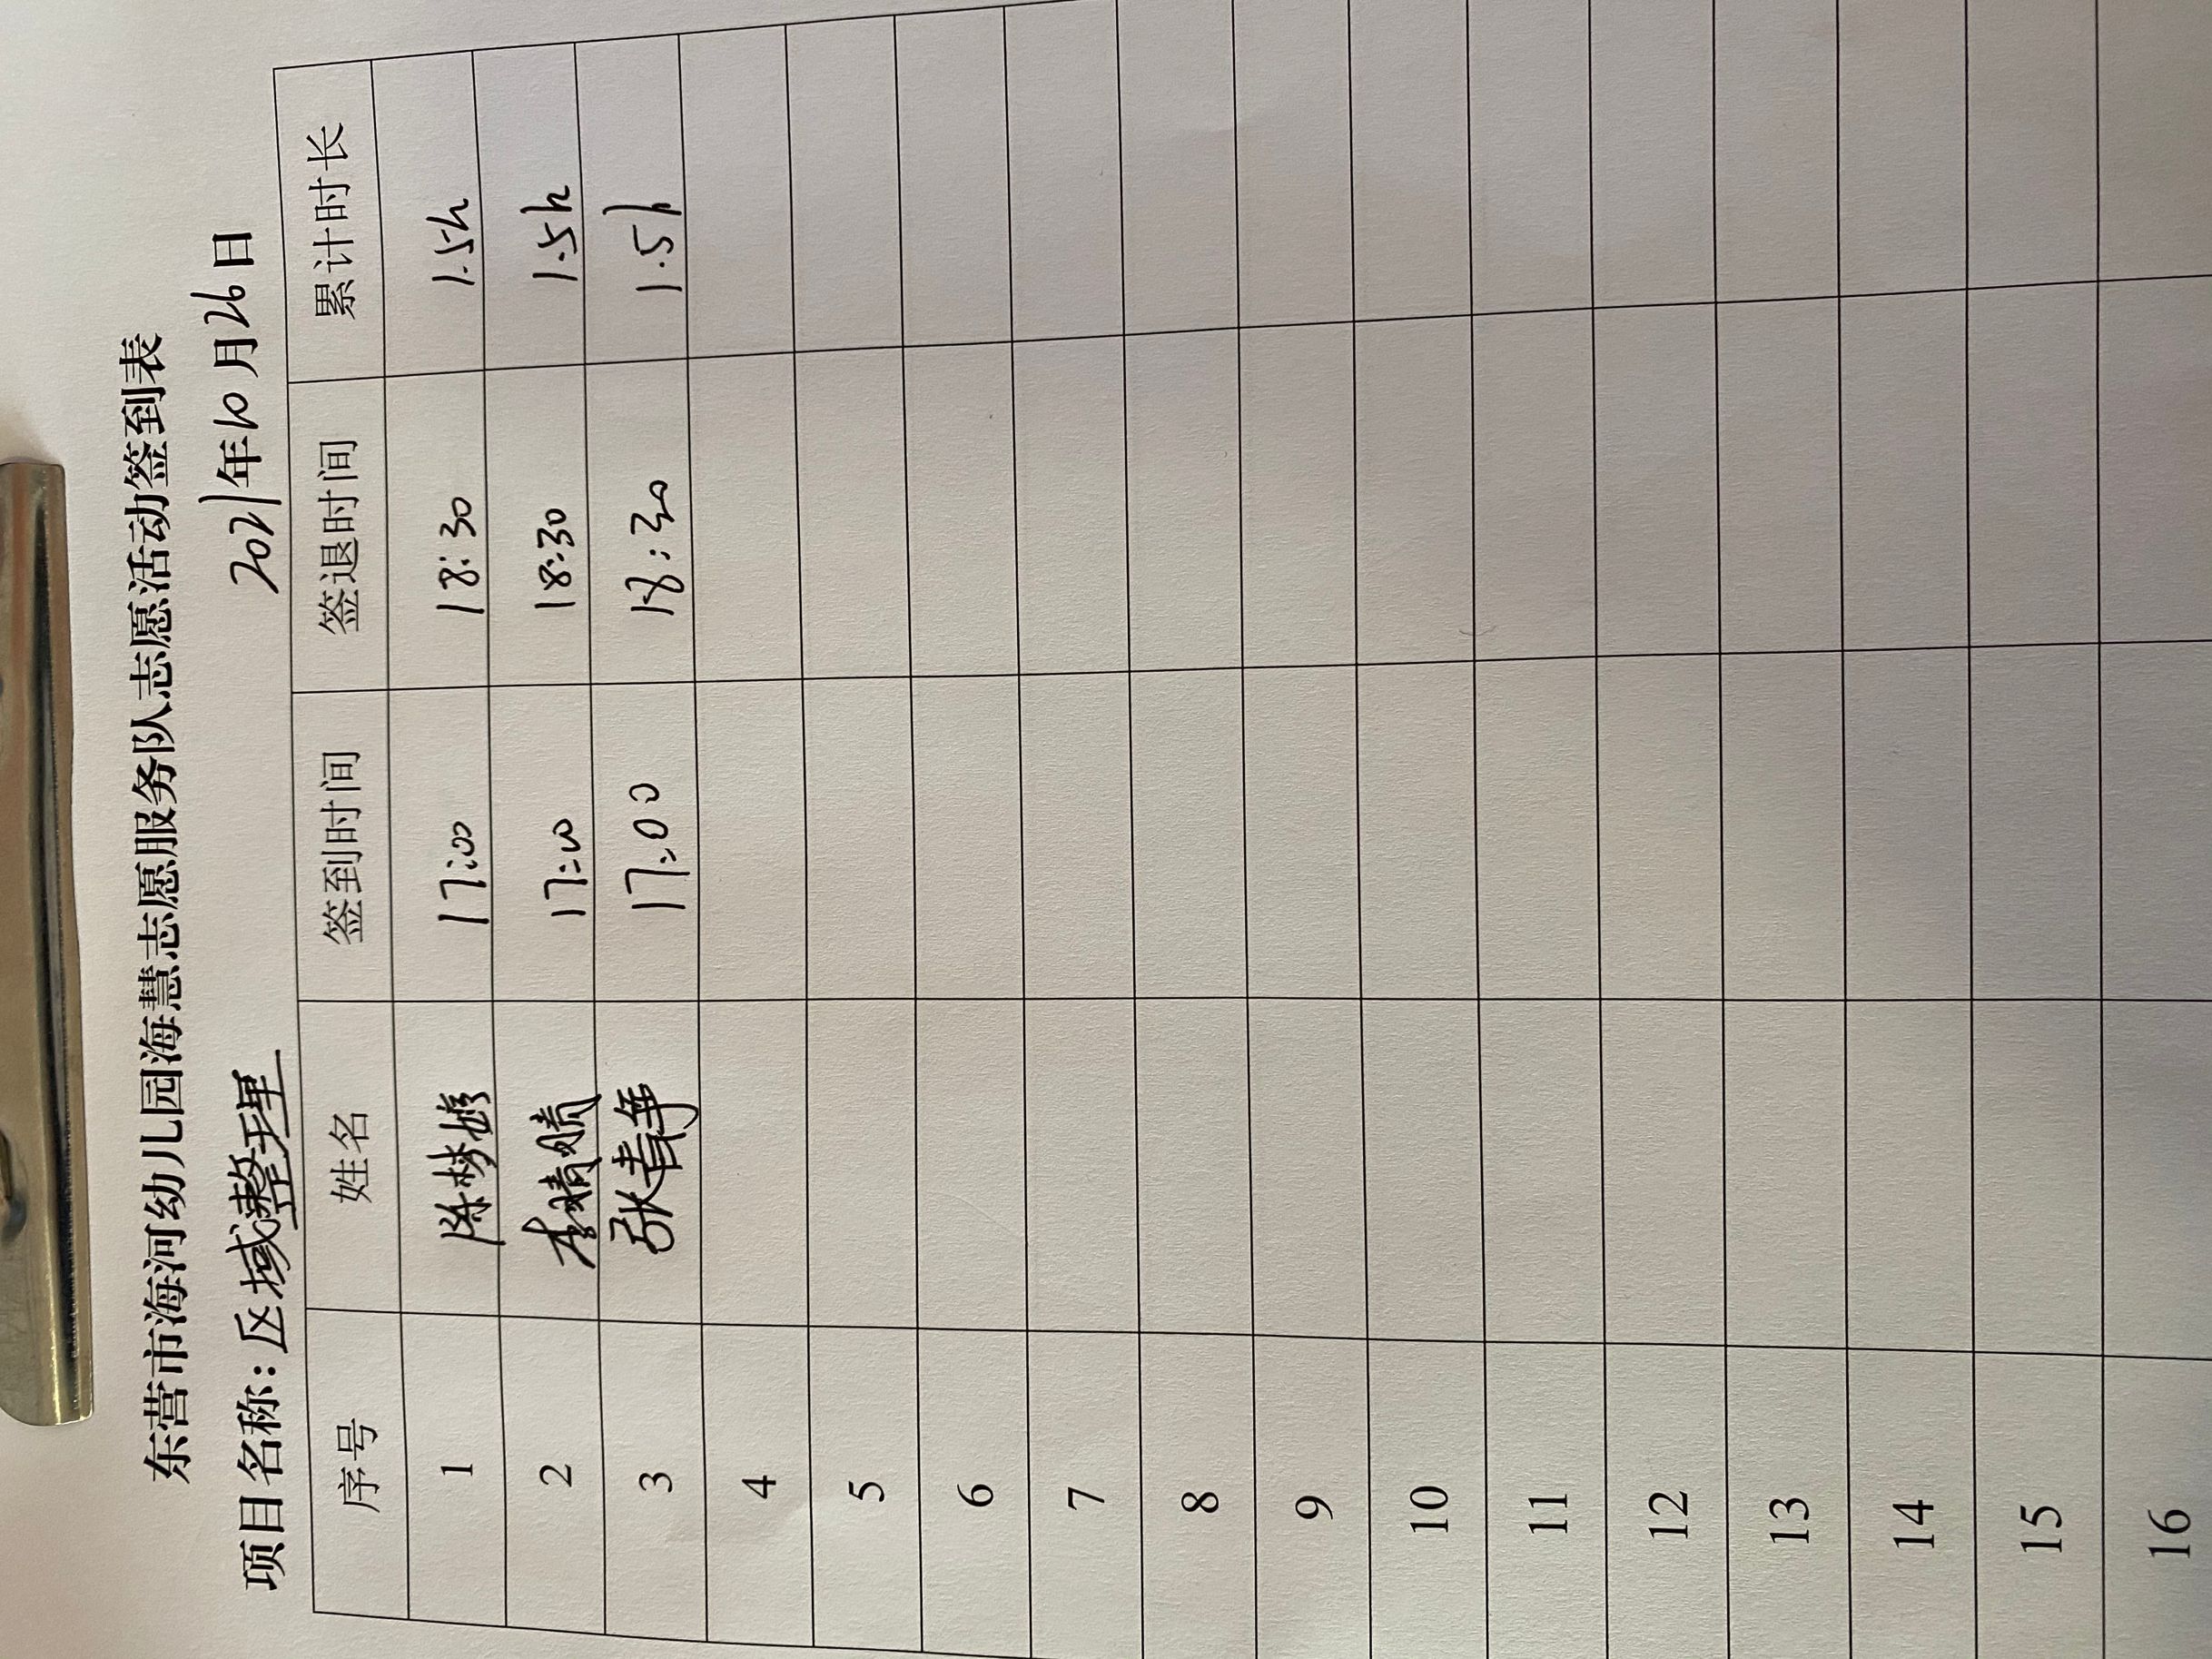 东营市海河幼儿园海慧志愿服务队志愿活动签到表
项目名称：区域整理 2021年10月26日
序号 姓名 签到时间 签退时间 累计时长
1 陈梦娇 17:00 18:30 1.5h
2 李晴晴 17:00 18:30 1.5h
3 张静 17:00 18:30 1.5h
4
5
6
7
8
9
10
11
12
13
14
15
16